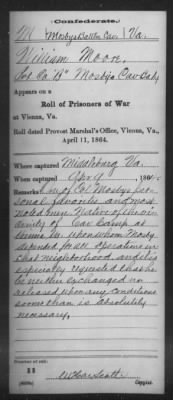 Confederate.
M | Mosby's Battn Cav. | Va.
William Moon
Co. "B" Mosby's Cav Bat
Appears on a
Roll of Prisoners of War
at Vienna, Va.
Roll dated Provost Marshal's Office, Vienna, Va.,
April 11, 1864.
Where captured Middleburg Va.
When captured Apr 9, 186
Remarks One of Col Mosby's per
sonal favorites and most
noted men. Native of the vicin
ity of Cav Camp at
Vienna Va. upon whom Mosby
depended for all operations in
that neighborhood, and it is
especially requested that he
be neither exchanged nor
released upon any conditions
sooner than is absolutely
necessary.
Number of roll:
11
Scott
Copyist.